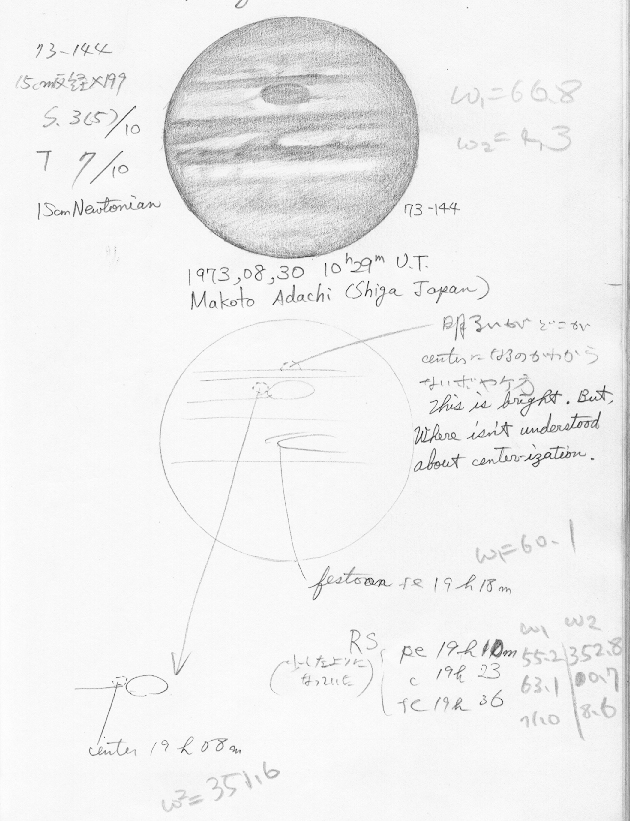 73-144
15cm反経×199
S. 3(5)/10
T 7/10
15cm Newtonian
ω1=66.8
ω2=
73-144
1973,08,30 10h29m U.T.
Makoto Adachi (Shiga Japan)
明るいが どこが
centerになるのかわから
ないボヤケ方
This is bright. But,
Where isn't understood
about center-ization.
ω1=60.1
festoon fe 19h18m
RS
pe 19h10m 55.2 352.8
c 19h 23 63.1 00.7
fe 19h 36 71.0 8.6
ω1 ω2
center 19h08m
ω2=351.6